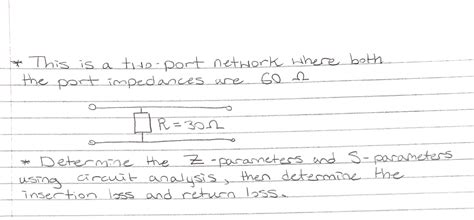 * This is a two-port network where both
the port impedances are 60 Ω
R = 30Ω
* Determine the Z-parameters and S-parameters
using circuit analysis, then determine the
insertion loss and return loss.